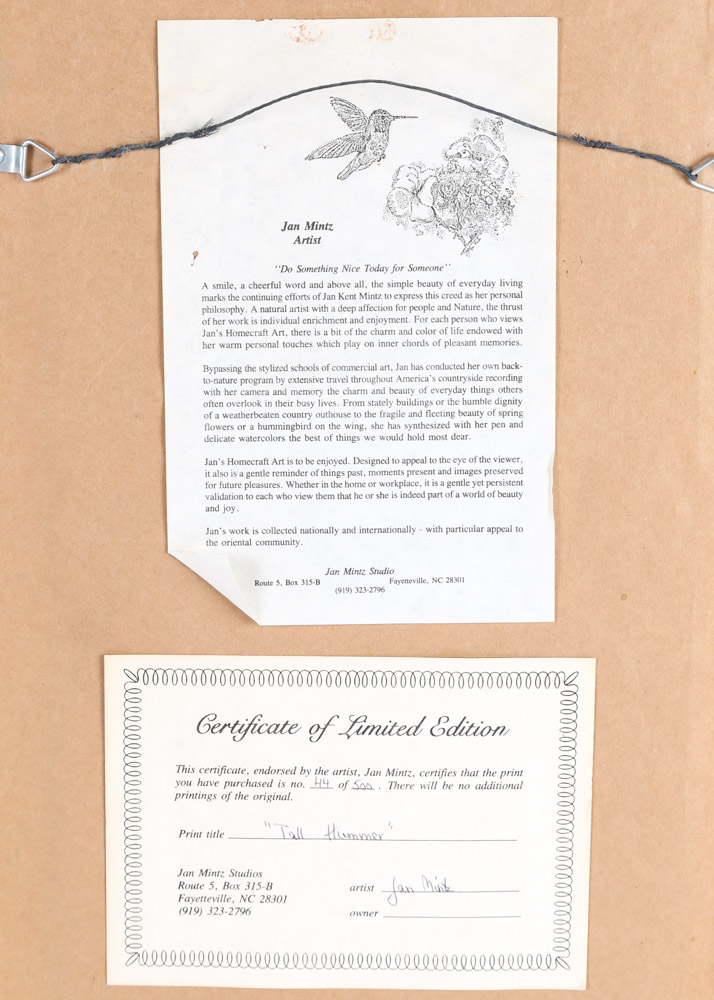 Jan Mintz
Artist
"Do Something Nice Today for Someone"
A smile, a cheerful word and above all, the simple beauty of everyday living
marks the continuing efforts of Jan Kent Mintz to express this creed as her personal
philosophy. A natural artist with a deep affection for people and Nature, the thrust
of her work is individual enrichment and enjoyment. For each person who views
Jan's Homecraft Art, there is a bit of the charm and color of life endowed with
her warm personal touches which play on inner chords of pleasant memories.
Bypassing the stylized schools of commercial art, Jan has conducted her own back-
to-nature program by extensive travel throughout America's countryside recording
with her camera and memory the charm and beauty of everyday things others
often overlook in their busy lives. From stately buildings or the humble dignity
of a weatherbeaten country outhouse to the fragile and fleeting beauty of spring
flowers or a hummingbird on the wing, she has synthesized with her pen and
delicate watercolors the best of things we would hold most dear.
Jan's Homecraft Art is to be enjoyed. Designed to appeal to the eye of the viewer,
it also is a gentle reminder of things past, moments present and images preserved
for future pleasures. Whether in the home or workplace, it is a gentle yet persistent
validation to each who view them that he or she is indeed part of a world of beauty
and joy.
Jan's work is collected nationally and internationally - with particular appeal to
the oriental community.
Jan Mintz Studio
Route 5, Box 315-B Fayetteville, NC 28301
(919) 323-2796
Certificate of Limited Edition
This certificate, endorsed by the artist, Jan Mintz, certifies that the print
you have purchased is no. 44 of 500. There will be no additional
printings of the original.
Print title "Tall Hummer"
Jan Mintz Studios
Route 5, Box 315-B
Fayetteville, NC 28301
(919) 323-2796
artist Jan Mintz
owner